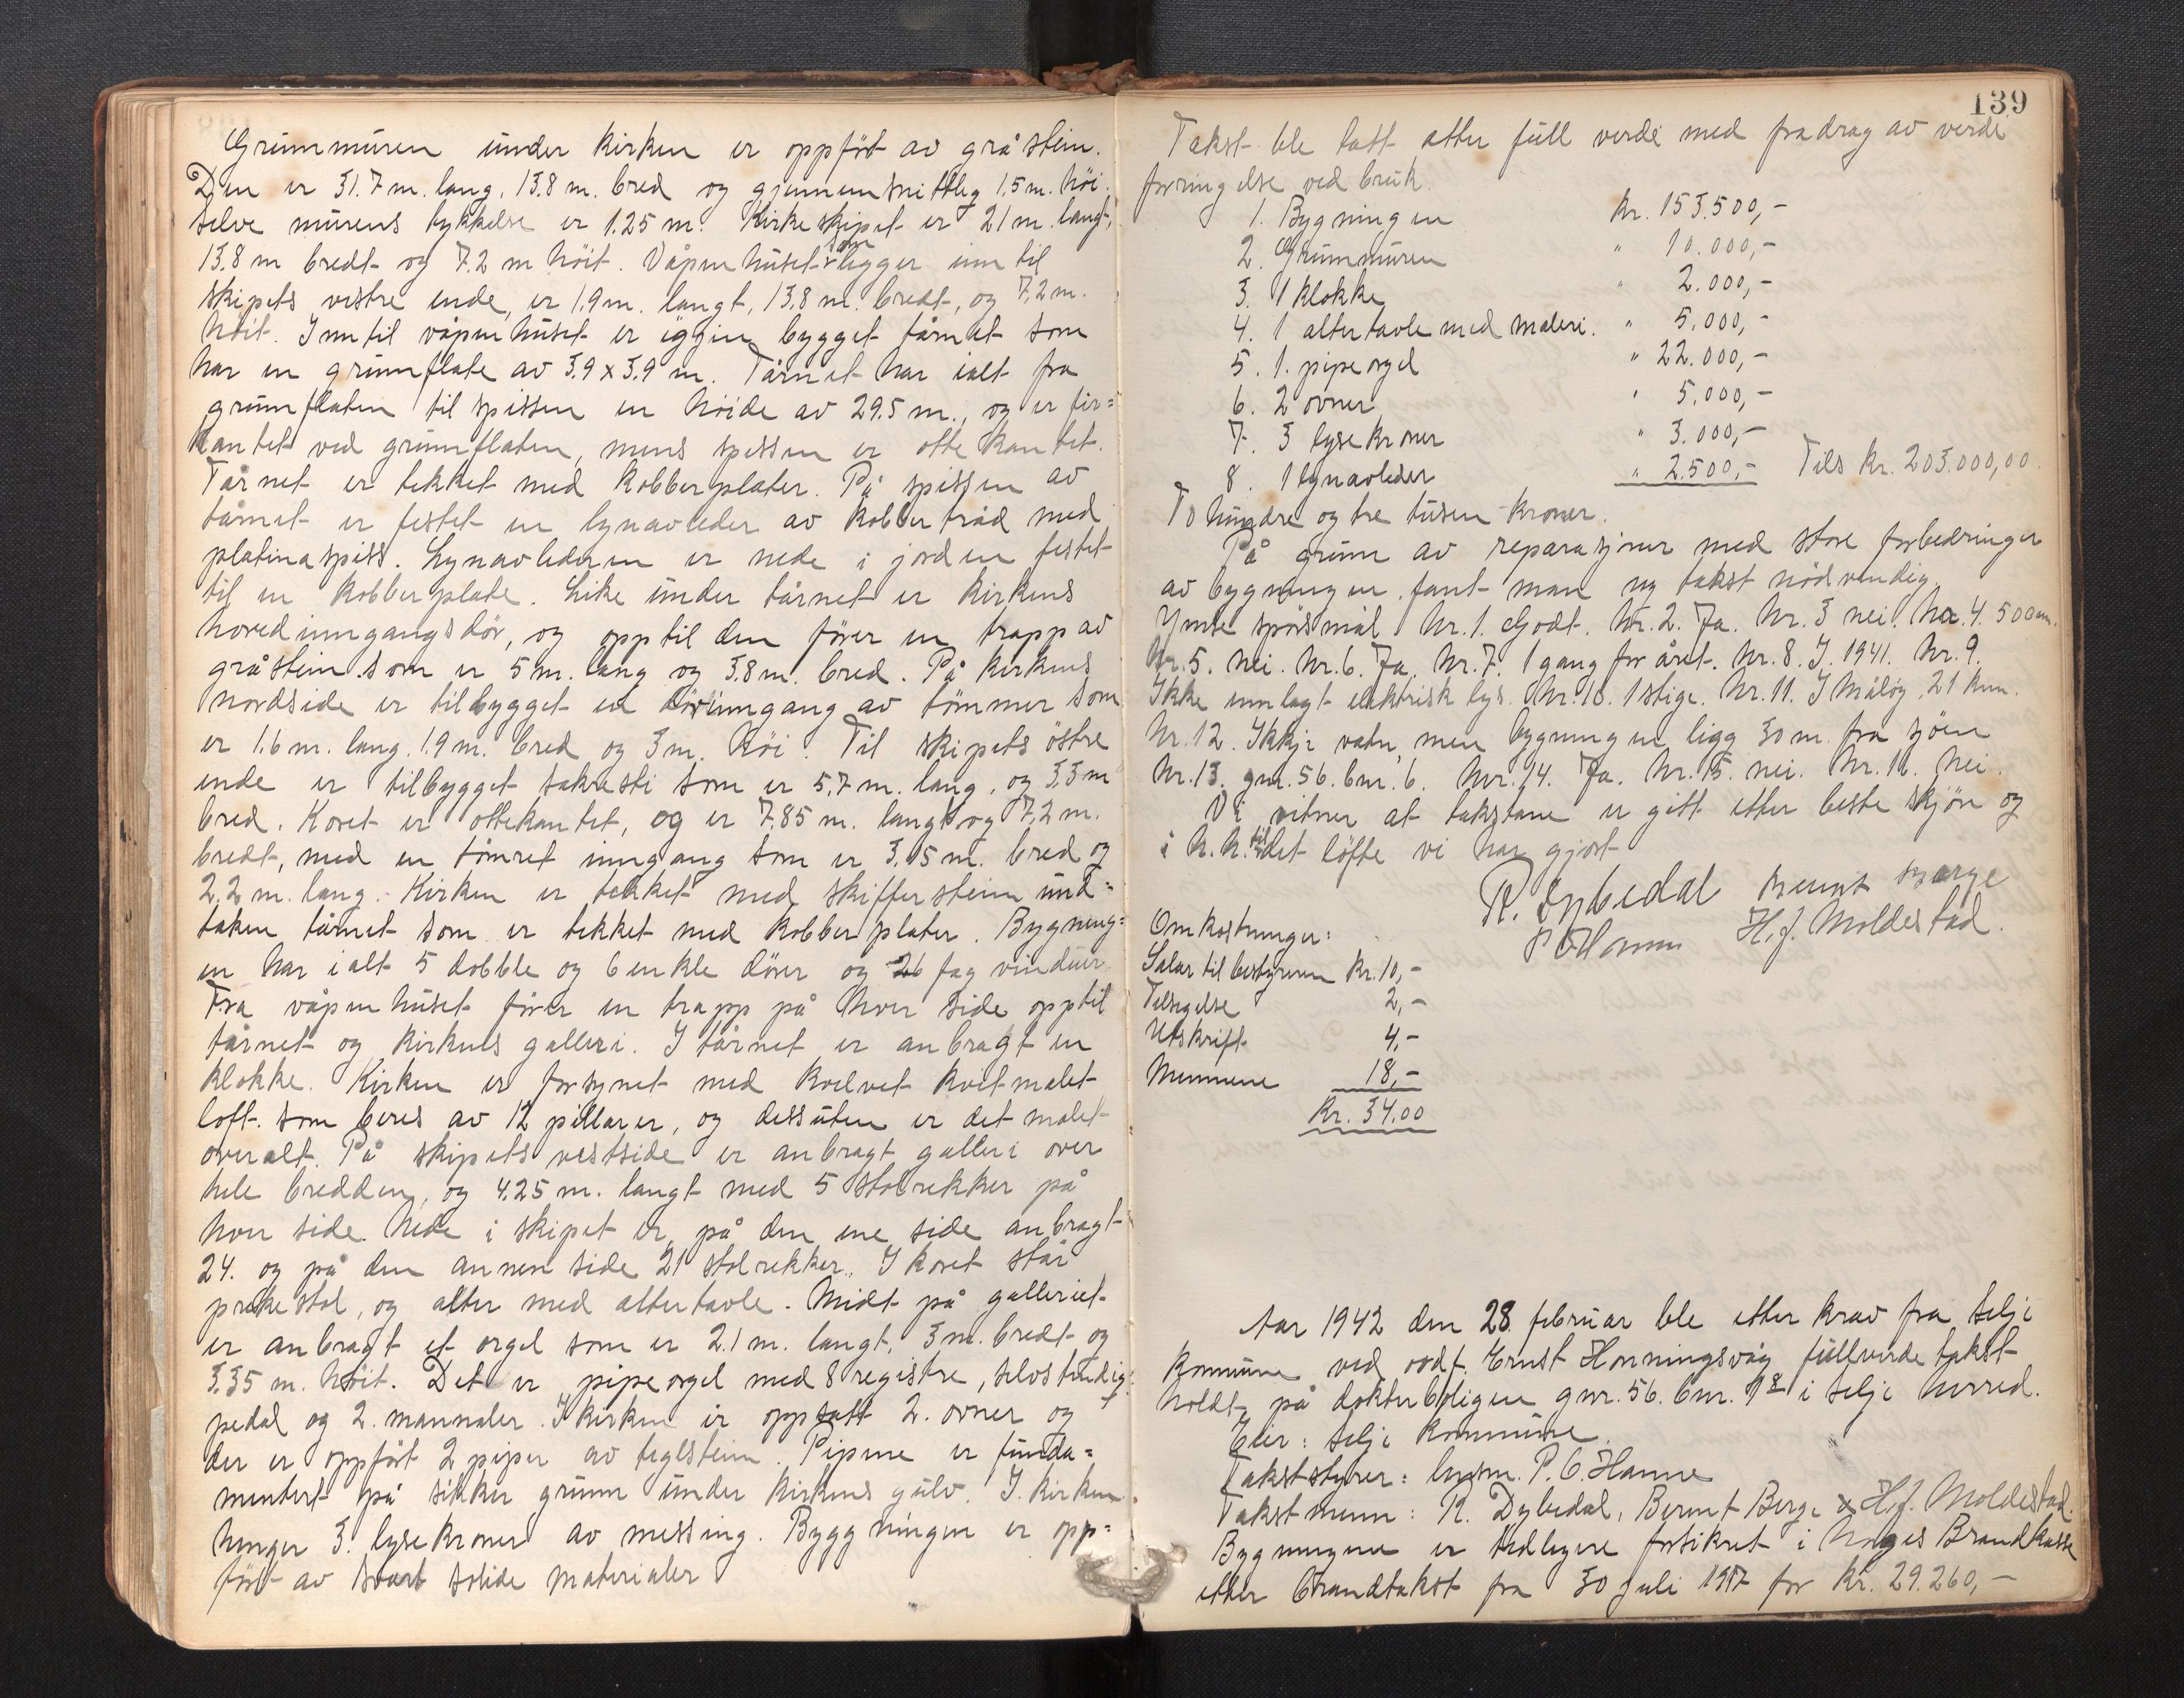 Grunnmuren under kirken er oppført av gråstein.
Den er 31.7 m. lang, 13.8 m. bred og gjennemsnittlig 1.5 m. høi.
Selve murens tykkelse er 1.25 m. Kirkeskipet er 21 m. langt,
13.8 m bredt og 7.2 m høit. Våpenhuset som ligger inn til
skipets vestre ende, er 1.9 m. langt, 13,8 m. bredt, og 7,2 m.
høit. Inntil våpenhuset er iggjen bygget tårnet som
har en grunnflate av 3.9 x 3.9 m. Tårnet har ialt fra
grunnflaten til spissen en høide av 29.5 m., og er fir=
kantet ved grunnflaten, mens spissen er ottekantet.
Tårnet er tekket med kobberplater. På spissen av
tårnet er festet en lynavleder av kobbertråd med
platinaspiss. Lynavlederen er nede i jorden festet
til en kobberplate. Like under tårnet er kirkens
hovedinngangsdør, og opptil den fører en trapp av
gråstein som er 5 m. lang og 3.8 m. bred. På kirkens
nordside er tilbygget en dørinngang av tømmer som
er 1.6 m. lang. 1.9 m. bred og 3 m. høi. Til skipets østre
ende er tilbygget sakresti som er 5,7 m. lang, og 3,3 m
bred. Koret er ottekantet, og er 7.85 m. langt og 7,2 m.
bredt, med en tømret inngang som er 3,15 m. bred og
2,2 m. lang. Kirken er tekket med skifferstein und=
taken tårnet som er tekket med kobberplater. Bygning=
en har ialt 5 dobble og 6 enkle dører og 26 fag vinduer.
Fra våpenhuset fører en trapp på hver side opptil
tårnet og kirkens galleri. I tårnet er anbragt en
klokke. Kirken er forsynet med kvelvet kvitmalet
loft. som beres av 12 pillarer, og dessuten er det malet
overalt. På skipets vestside er anbragt galleri over
hele bredden, og 4,25 m. langt med 5 stolrekker på
hver side. Nede i skipet er på den ene side anbragt
24. og på den annen side 21 stolrekker. I koret står
prekestol, og alter med altertavle. Midt på galleriet
er anbragt et orgel som er 2.1 m. langt, 3 m. bredt og
3.35 m. høit. Det er pipeorgel med 8 registre, selvstendig
pedal og 2. manualer. I kirken er oppsatt 2. ovner og
der er oppført 2 piper av teglstein. Pipene er funda=
mentert på sikker grunn under kirkens gulv. I kirken
henger 3. lysekroner av messing. Byggningen er opp=
ført av svært solide materialer
139
Takst ble tatt etter full verdi med fradrag av verdi
forringelse ved bruk.
1. Bygningen kr. 153.500,-
2. Grunnmuren " 10.000,-
3. 1 klokke " 2.000,-
4. 1 altertavle med maleri. " 5.000,-
5. 1. pipeorgel " 22.000,-
6. 2 ovner " 5.000,-
7. 3 lysekroner " 3.000,-
8. 1 lynavleder " 2.500,- Tils kr. 203.000,00.
To hundre og tre tusen kroner.
På grunn av reparasjoner med store forbedringer
av bygningen, fant man ny takst nødvendig.
Ymse spørsmål Nr. 1. Godt. Nr. 2. Ja. Nr. 3 nei. Nr. 4. 500 m.
Nr. 5. Nei. Nr. 6. Ja. Nr. 7. 1 gang for året. Nr. 8. I 1941. Nr. 9.
Ikke innlagt elektrisk lys. Nr. 10. 1 stige. Nr. 11. I Måløy, 21 km.
Nr. 12. Ikkje vatn, men bygningen ligg 30 m. fra sjøen
Nr. 13. gnr. 56. bnr. 6. Nr. 14. Ja. Nr. 15. nei. Nr. 16. Nei.
Vi vitner at takstane er gitt etter beste skjøn og
i h. h. til det løfte vi har gjort
R. Dybedal Bernt Berge
P O Hanne H. J. Moldestad.
Omkostninger:
Salær til bestyreren kr. 10,-
Tilsigelse 2,-
Utskrift 4,-
Mennene 18,-
Kr. 34.00
Aar 1942 den 28. februar ble etter krav fra Selje
kommune ved ordf. Ernst Honningsvåg fullverde takst
holdt på dokterboligen gnr. 56. bnr. 18 i Selje herred.
Eier: Selje kommune.
Takststyrer: lensm. P. O. Hanne
Takstmenn: R. Dybedal, Bernt Berge & H. J. Moldestad.
Bygningene er tidligere forsikret i Norges Brandkasse
etter brandtakst fra 30 juli 1917 for kr. 29.260,-